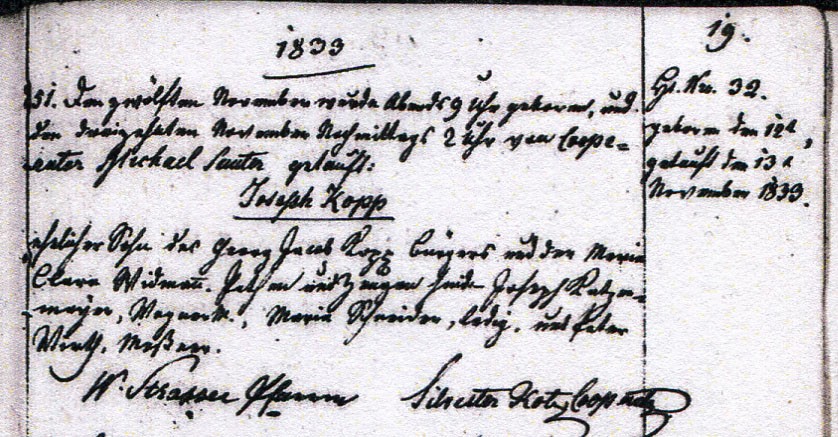 1833
19.
51. Den zwölften November wurde Abends 9 Uhr geboren, und
den dreizehnten November Nachmittags 2 Uhr von Coope=
rator Michael Sauter getauft:
Joseph Kopp
ehelicher Sohn des Georg Jacob Kopp Bürgers und der Maria
Clara Widmann. Pathen und Zeugen sind: Joseph Katzen=
mayer, Maria Schneider, ledig, und Peter
Wirth, Meßner.
W. Strasser Pfarrer
Silvester Cooperator
Hs. No. 32.
geboren den 12t,
getauft den 13t
November 1833.